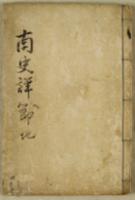 南史詳節